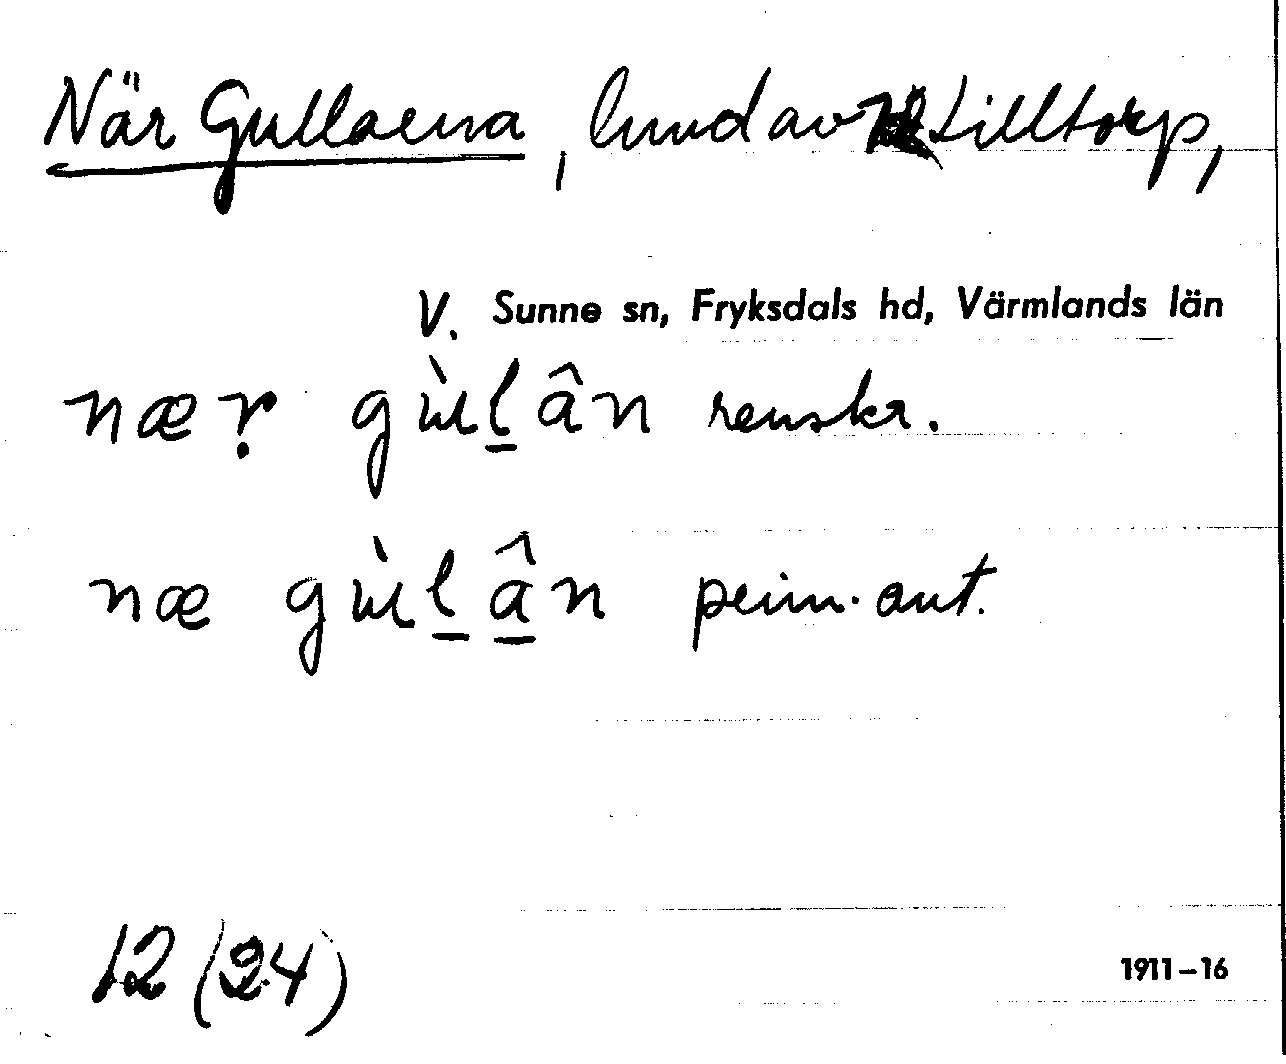 När Gullaena, lund av Lilltorp,
V. Sunne sn, Fryksdals hd, Värmlands län
næṛ gùl̠ân renskr.
næ gùl̠â̠n prim. ant.
12 (24)
1911–16